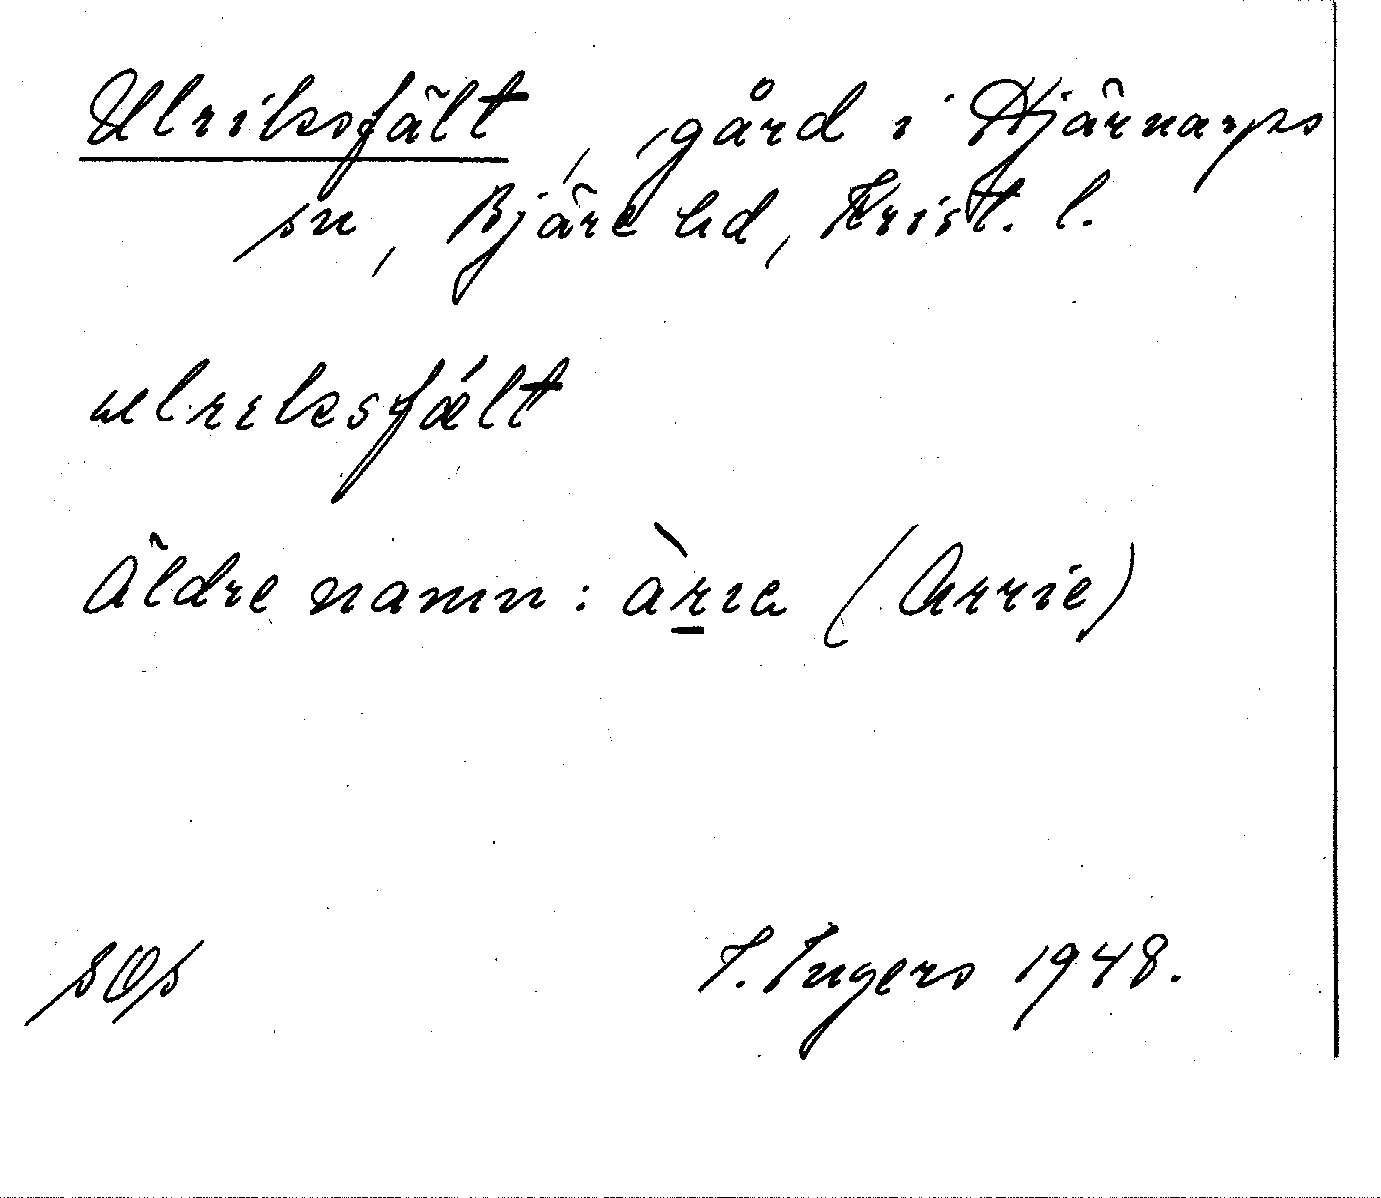 Ulriksfält, gård i Hjärnarps
sn, Bjäre hd, Krist. l.
ulriksfǽlt
Äldre namn: àrıe (Arrie)
sOs I. Ingers 1948.